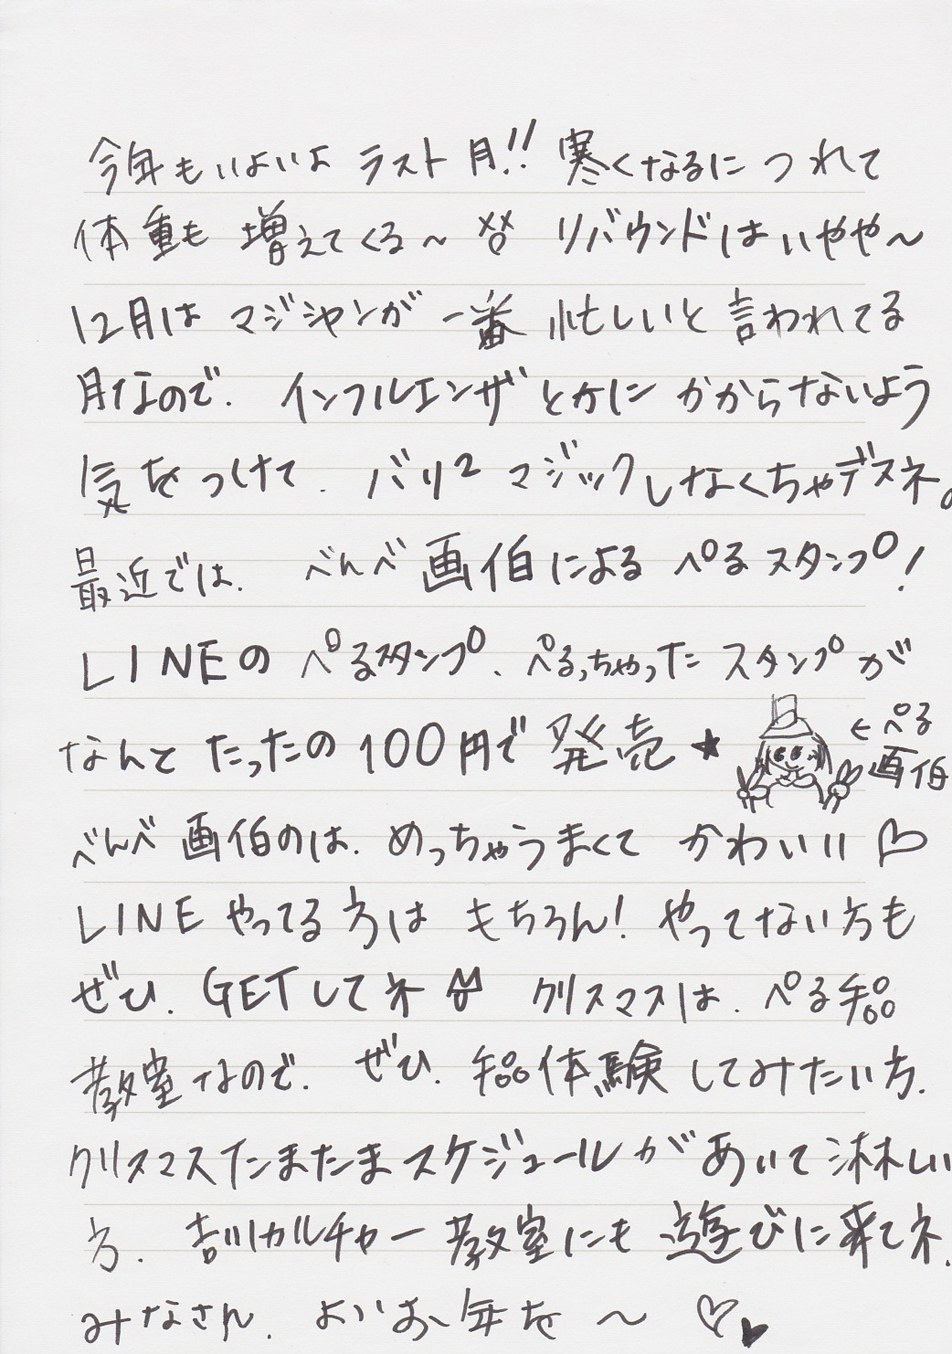 今年もいよいよ ラスト月!! 寒くなるに つれて
体重も 増えてくる〜 リバウンドは いやや〜
12月は マジシャンが 一番 忙しいと 言われてる
月なので. インフルエンザ とかに かからないよう
気を つけて. バリ2 マジックしなくちゃデスネ。
最近では. べんべ画伯による ぺるスタンプ!
LINEの ぺるスタンプ. ぺるっちゃった スタンプが
なんと たったの 100円で 発売★
←ぺる
画伯
べんべ 画伯のは. めっちゃうまくて かわいい♡
LINE やってる 方は もちろん! やってない方も
ぜひ. GETしてネ クリスマスは. ぺる
教室なので. ぜひ. 体験 してみたい方.
クリスマスたまたまスケジュールが あいて 淋しい
方. カルチャー 教室にも 遊びに来てネ.
みなさん. よいお年を 〜 ♡♥